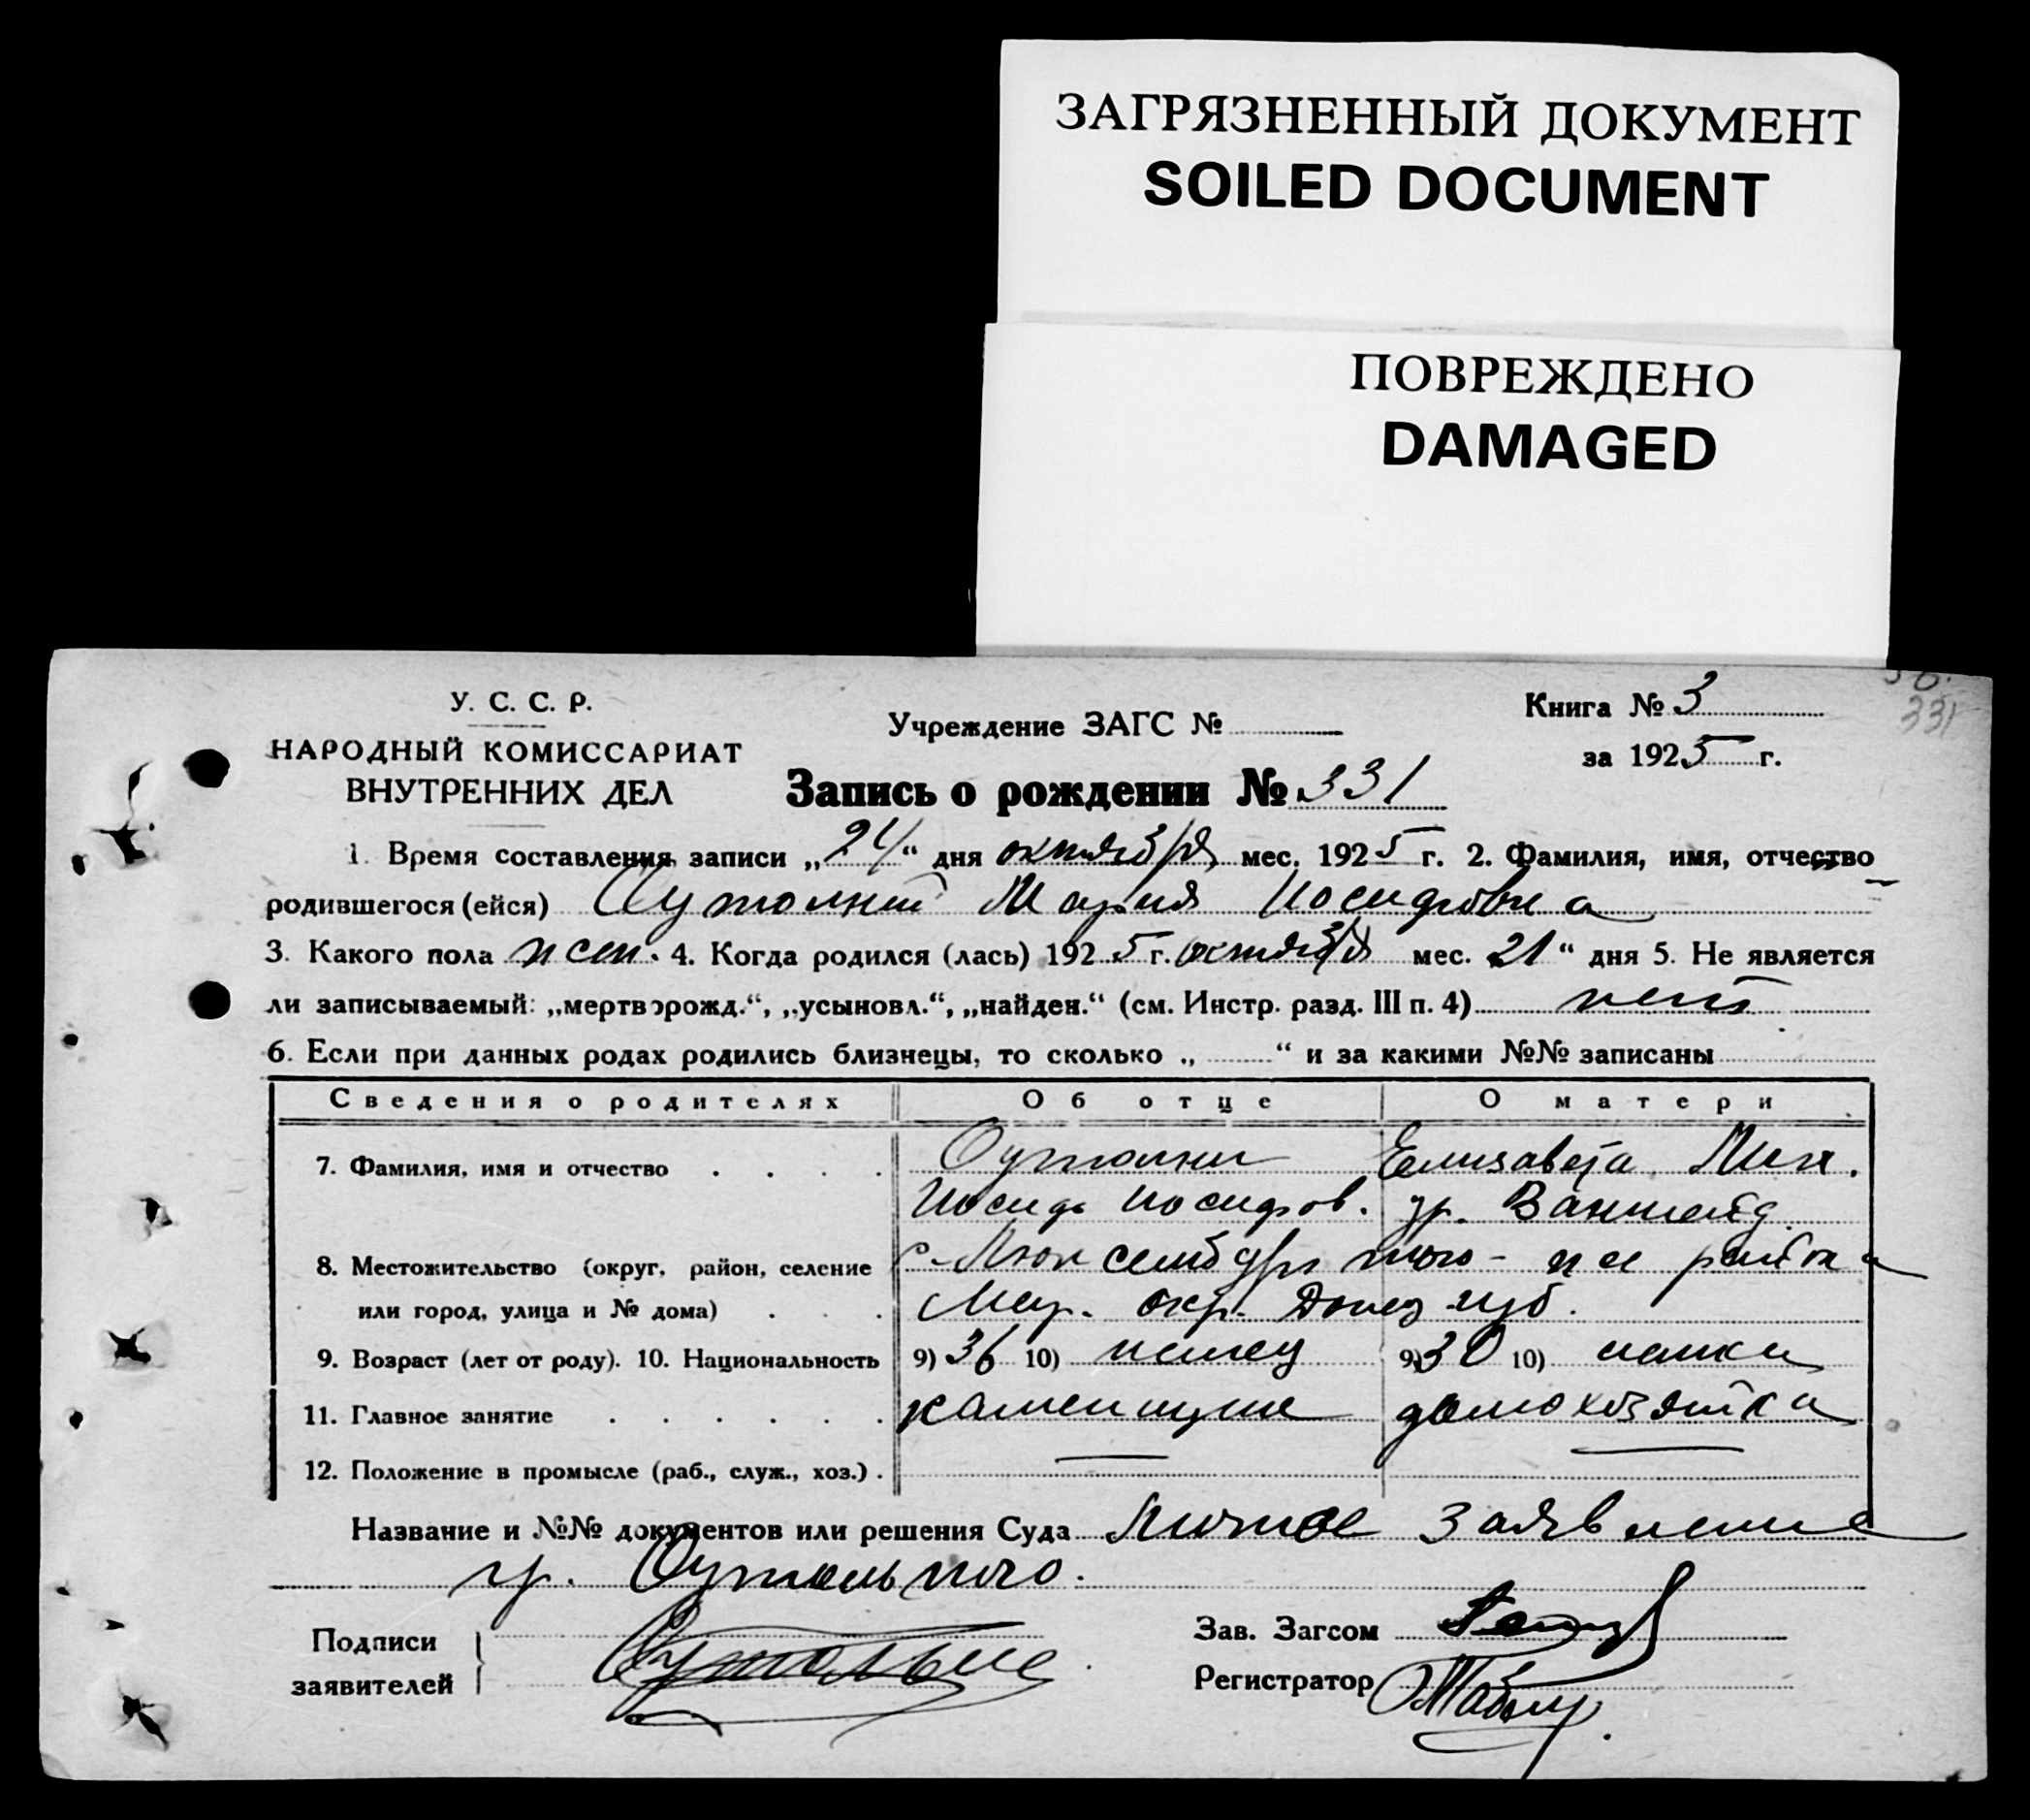 ЗАГРЯЗНЕННЫЙ ДОКУМЕНТ
SOILED DOCUMENT
ПОВРЕЖДЕНО
DAMAGED
331
У. С. С. Р.
НАРОДНЫЙ КОМИССАРИАТ
ВНУТРЕННИХ ДЕЛ
Учреждение ЗАГС №
Книга № 3
за 1925 г.
Запись о рождении № 331
1. Время составления записи „24“ дня октября мес. 1925 г. 2. Фамилия, имя, отчество
родившегося (ейся) Мария Иосифовна
3. Какого пола жен. 4. Когда родился (лась) 1925 г. октября мес. 21“ дня 5. Не является
ли записываемый: „мертворожд.“, „усыновл.“, „найден.“ (см. Инстр. разд. III п. 4) нет
6. Если при данных родах родились близнецы, то сколько „ “ и за какими №№ записаны
Сведения о родителях Об отце О матери
7. Фамилия, имя и отчество Елизавета Мих.
Иосиф Иосифов. ур.
8. Местожительство (округ, район, селение с. Люксембург того-же района
или город, улица и № дома) Мар. окр. Донец. губ.
9. Возраст (лет от роду). 10. Национальность 9) 36 10) немец 9) 30 10) немка
11. Главное занятие каменщик домохозяйка
12. Положение в промысле (раб., служ., хоз.)
Название и №№ документов или решения Суда Личное заявление
гр.
Подписи
заявителей
Зав. Загсом
Регистратор